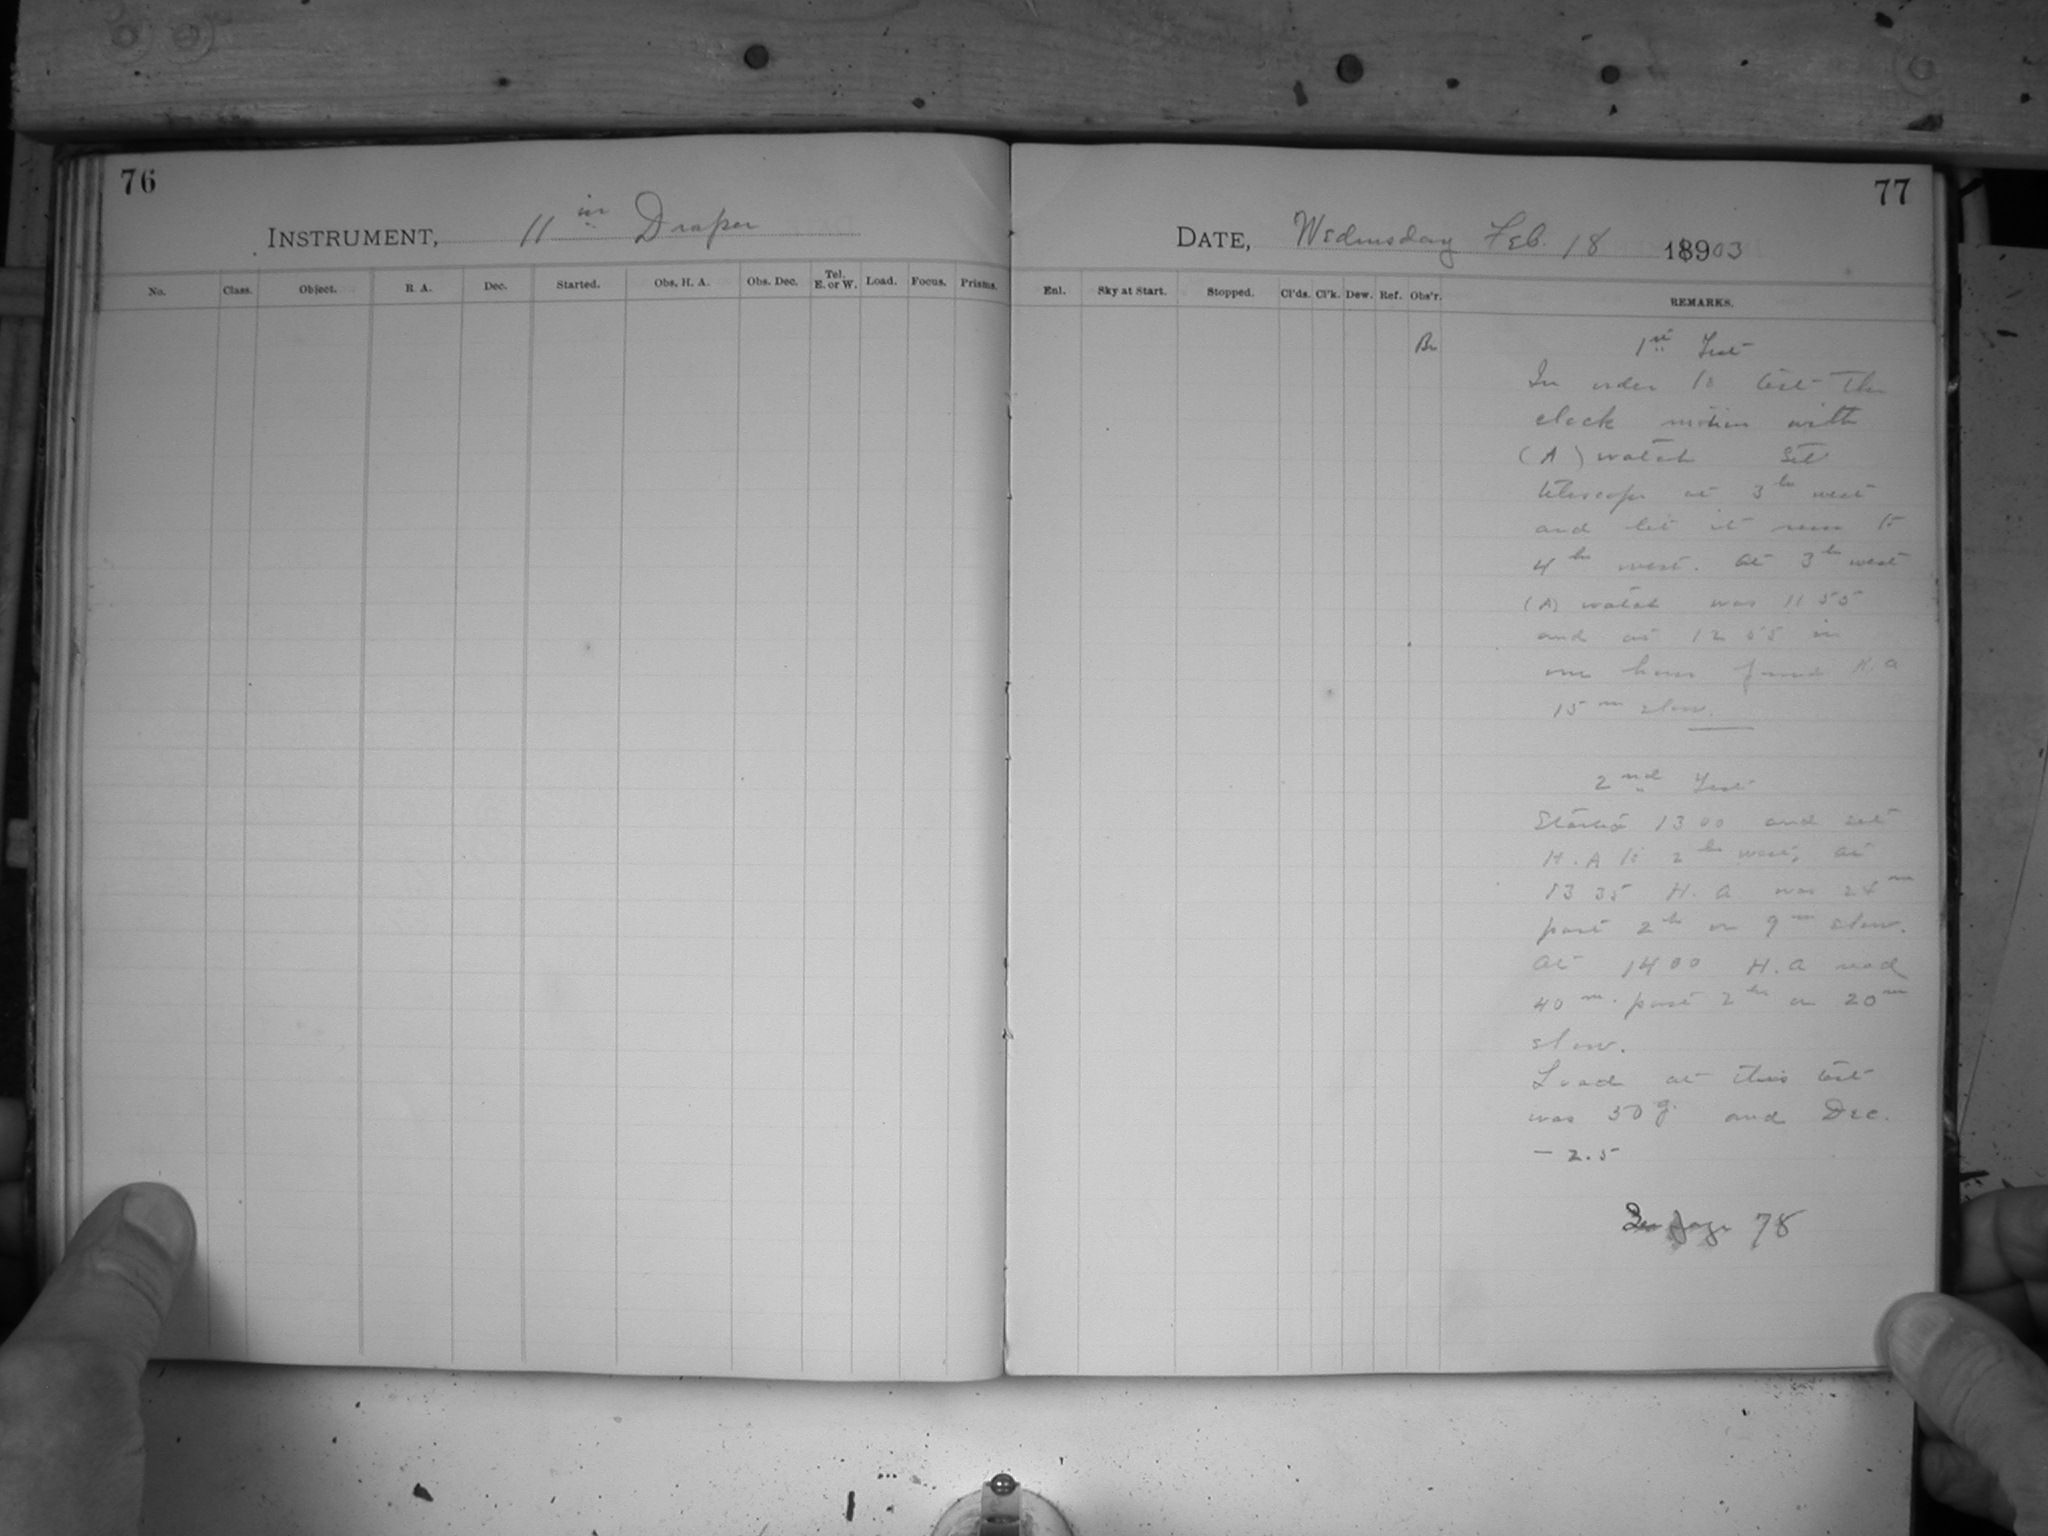 76
77
INSTRUMENT, 11 in Draper
DATE, Wednesday Feb. 18 1903
No. Class. Object. R. A. Dec. Started. Obs. H. A. Obs. Dec. Tel. E. or W. Load. Focus. Prisms.
Enl. Sky at Start. Stopped. Cl'ds. Cl'k. Dew. Ref. Obs'r. REMARKS.
Br
1st Test
In order to test the
clock motion with
(A) watch Set
telescope at 3h west
and let it run to
4h west. At 3h west
(A) watch was 11 55
and at 12 55 in
one hour found H.A
15m slow.
2nd Test
Started 13 00 and set
H.A to 2h west, at
13 35 H.A was 24m
past 2h or 9m slow.
At 14 00 H.A read
40m. past 2h or 20m
slow.
Load at this test
was 50g. and Dec.
- 2.5
See page 78